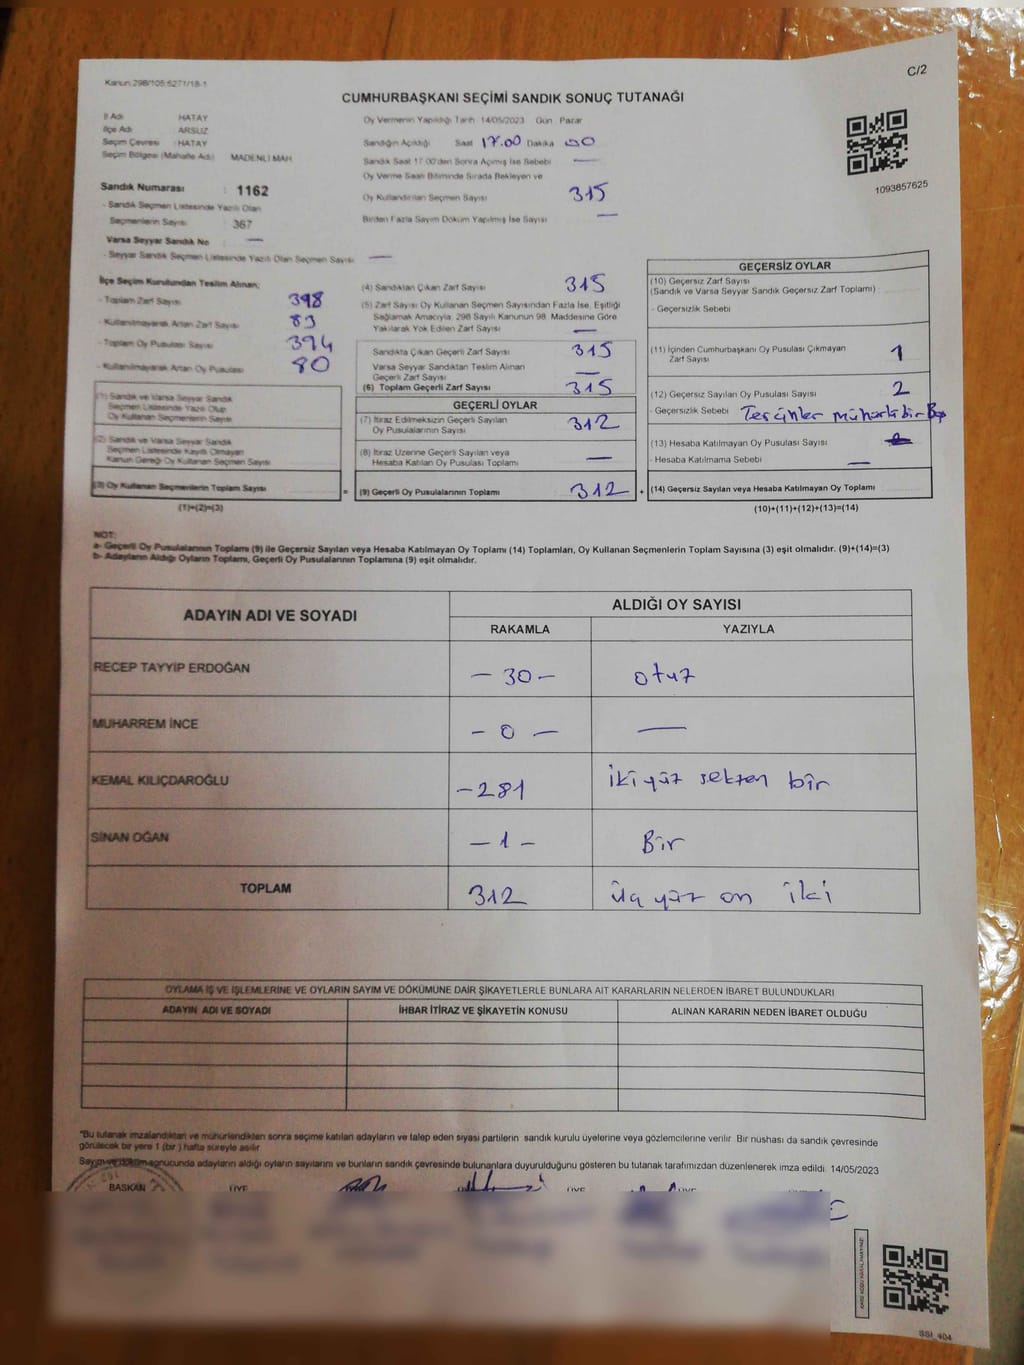 C/2
Kanun:298/105;6271/18-1
CUMHURBAŞKANI SEÇİMİ SANDIK SONUÇ TUTANAĞI
1093857625
İl Adı : HATAY
İlçe Adı : ARSUZ
Seçim Çevresi : HATAY
Seçim Bölgesi (Mahalle Adı) : MADENLİ MAH
Sandık Numarası : 1162
- Sandık Seçmen Listesinde Yazılı Olan
Seçmenlerin Sayısı : 367
Varsa Seyyar Sandık No : —
- Seyyar Sandık Seçmen Listesinde Yazılı Olan Seçmen Sayısı : —
Oy Vermenin Yapıldığı Tarih : 14/05/2023 Gün : Pazar
Sandığın Açıldığı Saat : 17.00 Dakika
Sandık Saat 17:00'den Sonra Açılmış İse Sebebi : —
Oy Verme Saati Bitiminde Sırada Bekleyen ve
Oy Kullandırılan Seçmen Sayısı : 315
Birden Fazla Sayım Döküm Yapılmış İse Sayısı : —
İlçe Seçim Kurulundan Teslim Alınan;
- Toplam Zarf Sayısı : 398
- Kullanılmayarak Artan Zarf Sayısı : 83
- Toplam Oy Pusulası Sayısı : 394
- Kullanılmayarak Artan Oy Pusulası : 80
(1) Sandık ve Varsa Seyyar Sandık
Seçmen Listesinde Yazılı Olup
Oy Kullanan Seçmenlerin Sayısı
(2) Sandık ve Varsa Seyyar Sandık
Seçmen Listesinde Kayıtlı Olmayan
Kanun Gereği Oy Kullanan Seçmen Sayısı
(3) Oy Kullanan Seçmenlerin Toplam Sayısı
(1)+(2)=(3)
(4) Sandıktan Çıkan Zarf Sayısı : 315
(5) Zarf Sayısı Oy Kullanan Seçmen Sayısından Fazla İse, Eşitliği
Sağlamak Amacıyla, 298 Sayılı Kanunun 98. Maddesine Göre
Yakılarak Yok Edilen Zarf Sayısı : —
Sandıkta Çıkan Geçerli Zarf Sayısı : 315
Varsa Seyyar Sandıktan Teslim Alınan
Geçerli Zarf Sayısı : —
(6) Toplam Geçerli Zarf Sayısı : 315
GEÇERLİ OYLAR
(7) İtiraz Edilmeksizin Geçerli Sayılan
Oy Pusulalarının Sayısı : 312
(8) İtiraz Üzerine Geçerli Sayılan veya
Hesaba Katılan Oy Pusulası Toplamı : —
= (9) Geçerli Oy Pusulalarının Toplamı : 312 +
GEÇERSİZ OYLAR
(10) Geçersiz Zarf Sayısı
(Sandık ve Varsa Seyyar Sandık Geçersiz Zarf Toplamı) :
- Geçersizlik Sebebi :
(11) İçinden Cumhurbaşkanı Oy Pusulası Çıkmayan
Zarf Sayısı : 1
(12) Geçersiz Sayılan Oy Pusulası Sayısı : 2
- Geçersizlik Sebebi : Tercihler mühürlü bir Boş
(13) Hesaba Katılmayan Oy Pusulası Sayısı :
- Hesaba Katılmama Sebebi : —
(14) Geçersiz Sayılan veya Hesaba Katılmayan Oy Toplamı
(10)+(11)+(12)+(13)=(14)
NOT:
a- Geçerli Oy Pusulalarının Toplamı (9) ile Geçersiz Sayılan veya Hesaba Katılmayan Oy Toplamı (14) Toplamları, Oy Kullanan Seçmenlerin Toplam Sayısına (3) eşit olmalıdır. (9)+(14)=(3)
b- Adayların Aldığı Oyların Toplamı, Geçerli Oy Pusulalarının Toplamına (9) eşit olmalıdır.
ADAYIN ADI VE SOYADI
ALDIĞI OY SAYISI
RAKAMLA YAZIYLA
RECEP TAYYİP ERDOĞAN — 30 — otuz
MUHARREM İNCE — 0 — —
KEMAL KILIÇDAROĞLU —281 İki yüz seksen bir
SİNAN OĞAN — 1 — Bir
TOPLAM 312 üç yüz on iki
OYLAMA İŞ VE İŞLEMLERİNE VE OYLARIN SAYIM VE DÖKÜMÜNE DAİR ŞİKAYETLERLE BUNLARA AİT KARARLARIN NELERDEN İBARET BULUNDUKLARI
ADAYIN ADI VE SOYADI İHBAR İTİRAZ VE ŞİKAYETİN KONUSU ALINAN KARARIN NEDEN İBARET OLDUĞU
*Bu tutanak imzalandıktan ve mühürlendikten sonra seçime katılan adayların ve talep eden siyasi partilerin sandık kurulu üyelerine veya gözlemcilerine verilir. Bir nüshası da sandık çevresinde
görülecek bir yere 1 (bir ) hafta süreyle asılır.
Sayım ve döküm sonucunda adayların aldığı oyların sayılarını ve bunların sandık çevresinde bulunanlara duyurulduğunu gösteren bu tutanak tarafımızdan düzenlenerek imza edildi. 14/05/2023
BAŞKAN ÜYE ÜYE ÜYE
KARE KODU KARALAMAYINIZ!
SSI_404